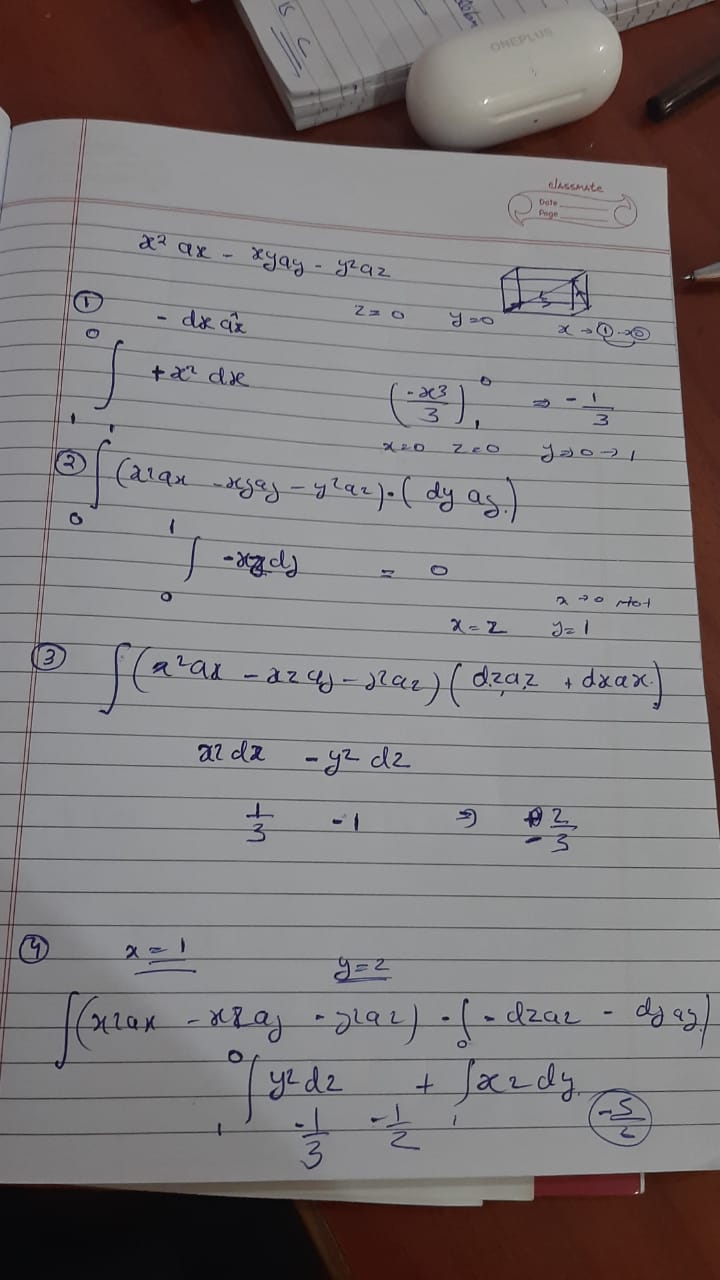 ONEPLUS
classmate
Date
Page
x² ax - xyay - y²az
① - dx âx z=0 y=0 x → ① → ⓪
0
∫ +x² dx (-x³/3) 0 ⇒ -1/3
1 1
x=0 z=0 y→0→1
② ∫ (x²ax - xzay - y²az)·(dy ay)
0
1
∫ -xzdy = 0
0
x→0
x=z y=1
③ ∫(x²ax - xzay - y²az)(dzaz + dxax)
x²dx - y² dz
1/3 -1 ⇒ -2/3
④ x=1 y=z
∫(x²ax - xzay - y²az)·(-dzaz - dyay)
0 0
∫y²dz + ∫xzdy
1 1
-1/3 -1/2 -5/6